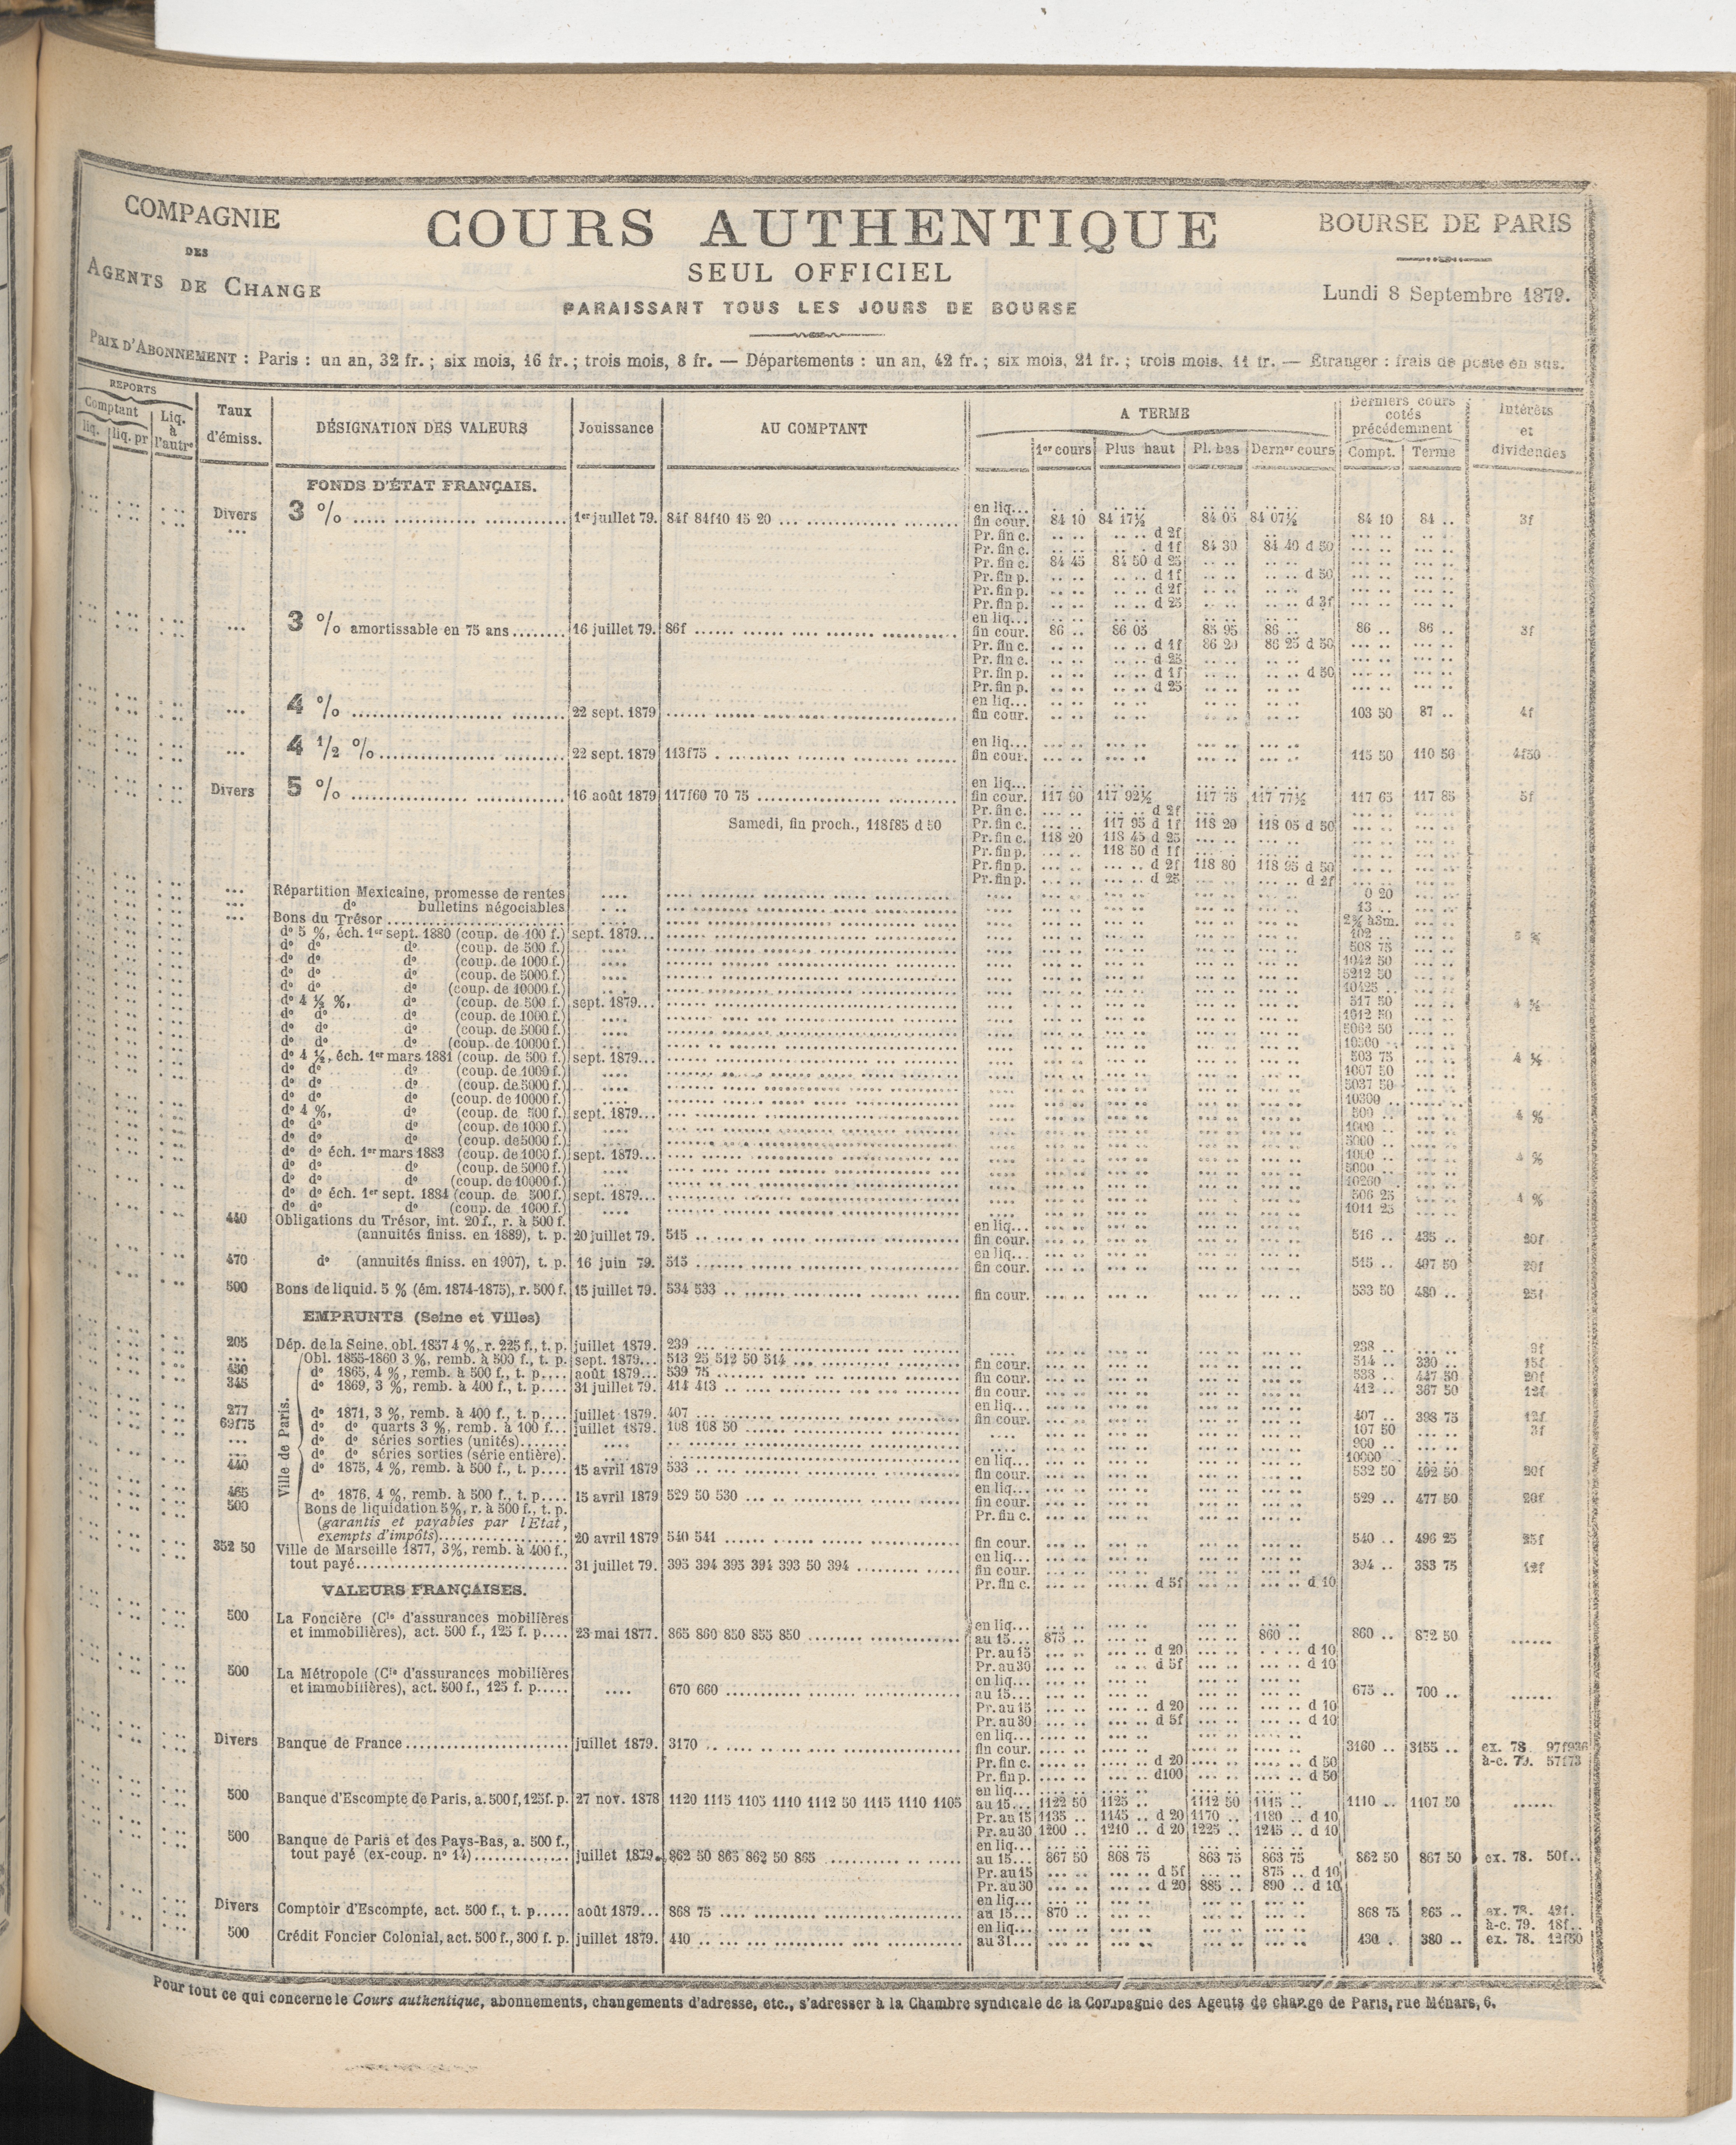 COMPAGNIE
DES
AGENTS DE CHANGE
COURS AUTHENTIQUE
SEUL OFFICIEL
PARAISSANT TOUS LES JOURS DE BOURSE
BOURSE DE PARIS
Lundi 8 Septembre 1879.
PRIX D'ABONNEMENT : Paris : un an, 32 fr. ; six mois, 16 fr. ; trois mois, 8 fr. — Départements : un an, 42 fr. ; six mois, 21 fr. ; trois mois, 11 fr. — Étranger : frais de poste en sus.
REPORTS
Comptant Liq. à l'autre
liq. liq. pr
Taux d'émiss.
DÉSIGNATION DES VALEURS
Jouissance
AU COMPTANT
A TERME
1er cours Plus haut Pl. bas Dernr cours
Derniers cours cotés précédemment
Compt. Terme
Intérêts et dividendes
FONDS D'ÉTAT FRANÇAIS.
en liq...
Divers 3 % 1er juillet 79. 84f 84f10 15 20 fin cour. 84 10 84 17½ 84 05 84 07½ 84 10 84 .. 3f
Pr. fin c. d 2f
Pr. fin c. d 1f 84 30 84 40 d 50
Pr. fin c. 84 45 84 50 d 25
Pr. fin p. d 1f d 50
Pr. fin p. d 2f
Pr. fin p. d 25 d 3f
en liq...
3 % amortissable en 75 ans 16 juillet 79. 86f fin cour. 86 .. 86 05 85 95 86 .. 86 .. 86 .. 3f
Pr. fin c. d 1f 86 20 86 25 d 50
Pr. fin c. d 25
Pr. fin p. d 1f d 50
Pr. fin p. d 25
en liq...
4 % 22 sept. 1879 fin cour. 103 50 87 .. 4f
en liq...
4 ½ % 22 sept. 1879 113f75 fin cour. 115 50 110 50 4f50
en liq...
Divers 5 % 16 août 1879 117f60 70 75 fin cour. 117 90 117 92½ 117 75 117 77½ 117 65 117 85 5f
Pr. fin c. d 2f
Samedi, fin proch., 118f85 d 50 Pr. fin c. 117 95 d 1f 118 20 118 05 d 50
Pr. fin c. 118 20 118 45 d 25
Pr. fin p. 118 50 d 1f
Pr. fin p. d 2f 118 80 118 95 d 50
Pr. fin p. d 25 d 2f
Répartition Mexicaine, promesse de rentes 0 20
do bulletins négociables 13 ..
Bons du Trésor
do 5 %, éch. 1er sept. 1880 (coup. de 100 f.) sept. 1879... 102 .. 5 %
do do do (coup. de 500 f.) 508 75
do do do (coup. de 1000 f.) 1042 50
do do do (coup. de 5000 f.) 5212 50
do do do (coup. de 10000 f.) 10425 ..
do 4 ½ %, do (coup. de 500 f.) sept. 1879... 517 50
do do do (coup. de 1000 f.) 1012 50
do do do (coup. de 5000 f.) 5062 50
do do do (coup. de 10000 f.) 10300
do 4 ½, éch. 1er mars 1881 (coup. de 500 f.) sept. 1879... 503 75
do do do (coup. de 1000 f.) 1007 50
do do do (coup. de 5000 f.) 5037 50
do do do (coup. de 10000 f.) 10300
do 4 %, do (coup. de 500 f.) sept. 1879... 500 .. 4 %
do do do (coup. de 1000 f.) 1000 ..
do do do (coup. de 5000 f.) 5000 ..
do do éch. 1er mars 1883 (coup. de 1000 f.) sept. 1879... 1000 .. 4 %
do do do (coup. de 5000 f.) 5000 ..
do do do (coup. de 10000 f.) 10200 ..
do do éch. 1er sept. 1884 (coup. de 500 f.) sept. 1879... 506 25 4 %
do do do (coup. de 1000 f.) 1011 25
440 Obligations du Trésor, int. 20 f., r. à 500 f. en liq...
(annuités finiss. en 1889), t. p. 20 juillet 79. 515 fin cour. 516 .. 435 .. 20f
en liq...
470 do (annuités finiss. en 1907), t. p. 16 juin 79. 515 fin cour. 515 .. 407 50 20f
500 Bons de liquid. 5 % (ém. 1874-1875), r. 500 f. 15 juillet 79. 534 533 fin cour. 533 50 480 .. 25f
EMPRUNTS (Seine et Villes)
205 Dép. de la Seine, obl. 1857 4 %, r. 225 f., t. p. juillet 1879. 239 238 .. 9f
Ville de Paris.
Obl. 1855-1860 3 %, remb. à 500 f., t. p. sept. 1879... 513 25 512 50 514 fin cour. 514 .. 330 .. 15f
450 do 1865, 4 %, remb. à 500 f., t. p. août 1879... 539 75 fin cour. 538 .. 447 50 20f
345 do 1869, 3 %, remb. à 400 f., t. p. 31 juillet 79. 414 413 fin cour. 412 .. 367 50 12f
en liq...
277 do 1871, 3 %, remb. à 400 f., t. p. juillet 1879. 407 fin cour. 407 .. 398 75 12f
69f75 do do quarts 3 %, remb. à 100 f. juillet 1879. 108 108 50 107 50 3f
do do séries sorties (unités) 900 ..
do do séries sorties (série entière). en liq... 10000 ..
440 do 1875, 4 %, remb. à 500 f., t. p. 15 avril 1879 533 fin cour. 532 50 492 50 20f
en liq...
465 do 1876, 4 %, remb. à 500 f., t. p. 15 avril 1879 529 50 530 fin cour. 529 .. 477 50 20f
500 Bons de liquidation 5%, r. à 500 f., t. p. Pr. fin c.
(garantis et payables par l'État,
exempts d'impôts) 20 avril 1879 540 541 fin cour. 540 .. 496 25 25f
352 50 Ville de Marseille 1877, 3%, remb. à 400 f., en liq...
tout payé 31 juillet 79. 395 394 395 394 393 50 394 fin cour. 394 .. 383 75 12f
Pr. fin c. d 5f d 10
VALEURS FRANÇAISES.
500 La Foncière (Cie d'assurances mobilières en liq...
et immobilières), act. 500 f., 125 f. p. 23 mai 1877. 865 860 850 855 850 au 15... 875 .. 860 .. 860 .. 872 50
Pr. au 15 d 20 d 10
Pr. au 30 d 5f d 10
500 La Métropole (Cie d'assurances mobilières en liq...
et immobilières), act. 500 f., 125 f. p. 670 660 au 15... 675 .. 700 ..
Pr. au 15 d 20 d 10
Pr. au 30 d 5f d 10
en liq...
Divers Banque de France juillet 1879. 3170 fin cour. 3160 .. 3155 .. ex. 78. 97f936
Pr. fin c. d 20 d 50 à-c. 79. 57f73
Pr. fin p. d100 d 50
en liq...
500 Banque d'Escompte de Paris, a. 500 f, 125f. p. 27 nov. 1878 1120 1115 1105 1110 1112 50 1115 1110 1105 au 15... 1122 50 1125 .. 1112 50 1115 .. 1110 .. 1107 50
Pr. au 15 1135 .. 1145 .. d 20 1170 .. 1180 .. d 10
Pr. au 30 1200 .. 1210 .. d 20 1225 .. 1215 .. d 10
500 Banque de Paris et des Pays-Bas, a. 500 f., en liq...
tout payé (ex-coup. no 14) juillet 1879. 862 50 865 862 50 865 au 15... 867 50 868 75 863 75 863 75 862 50 867 50 ex. 78. 50f..
Pr. au 15 d 5f 875 .. d 10
Pr. au 30 d 20 885 .. 890 .. d 10
en liq...
Divers Comptoir d'Escompte, act. 500 f., t. p. août 1879... 868 75 au 15... 870 .. 868 75 865 .. ex. 78. 42f.
en liq... à-c. 79. 18f..
500 Crédit Foncier Colonial, act. 500 f., 300 f. p. juillet 1879. 440 au 31... 430 .. 380 .. ex. 78. 12f50
Pour tout ce qui concerne le Cours authentique, abonnements, changements d'adresse, etc., s'adresser à la Chambre syndicale de la Compagnie des Agents de change de Paris, rue Ménars, 6.